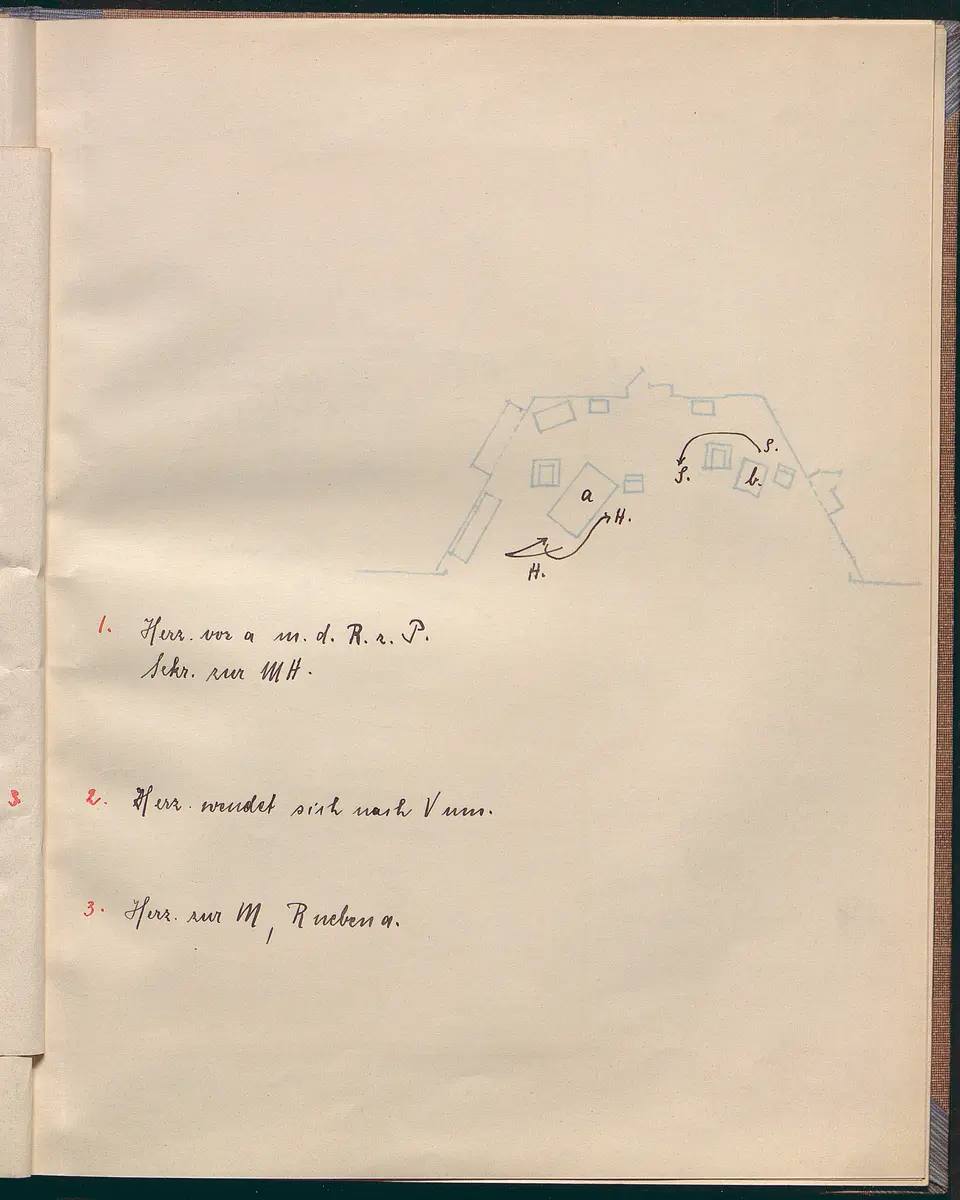 S.
S.
b.
a
H.
H.
1. Herz. vor a m. d. R. z. P.
Sekr. zur MH.
3.
2. Herz. wendet sich nach V um.
3. Herz. zur M, R neben a.